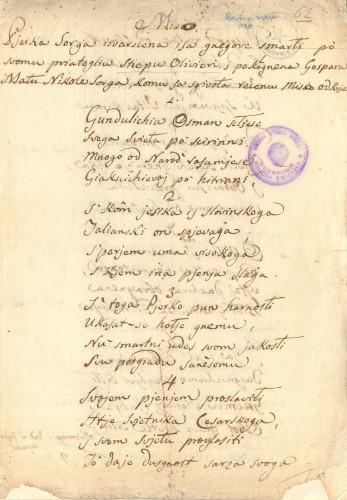 Misô
Pjerka Sorga isvarscena isa gnegove smarti pô
svomu priateglju Stepu Olivieri, i poklognena Gosparu
Matu Nikole Sorga, komu jes sgivota recenu Misô odloje
1.
Gundulichia Osman scljese
Svega svieta pô scirinni,
Mnogo od Naroda rasumjese
Giaksichievoj pô hitrinni,
2.
S'kôm jesika iz slovinskoga
Talianski on spjevagà
S'perjem uma visokoga
S'kjem ina pjenja slaga.
3.
S'toga Pjerko pun harnosti
Ukasat-se hotje gnemu,
Nu smartni udes svom jakosti
Svu porgiadu sanêsemu
4
Svojem pjenjem proslaviti
Htje svjetnika Cesarskoga,
I svem svjetu proglasiti
Tô da je dusgnost sarza svoga
62